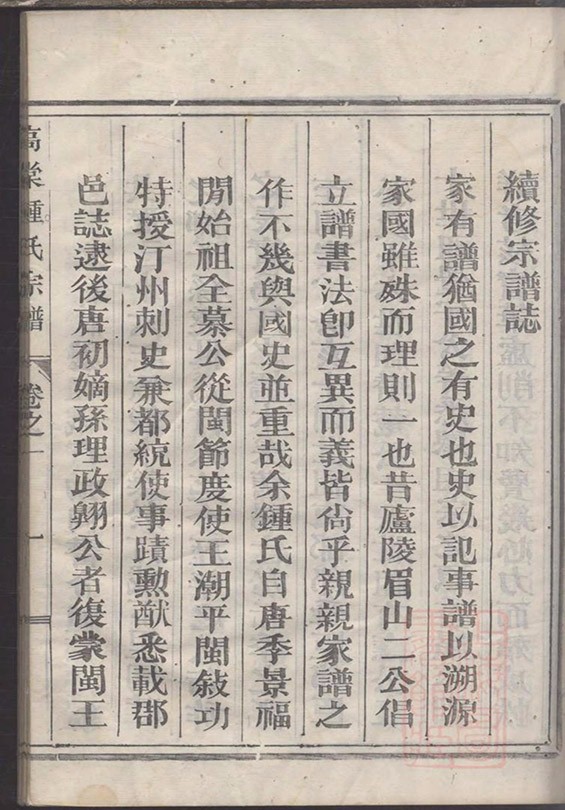 續修宗譜誌
家有譜猶國之有史也史以記事譜以溯源
家國雖殊而理則一也昔廬陵眉山二公倡
立譜書法卽互異而義皆尙乎親親家譜之
作不幾與國史並重哉余鍾氏自唐季景福
閒始祖全慕公從閩節度使王潮平閩敍功
特授汀州刺史兼都統使事蹟勲猷悉載郡
邑誌逮後唐初嫡孫理政翱公者復蒙閩王
高棠鍾氏宗譜
卷之一
一